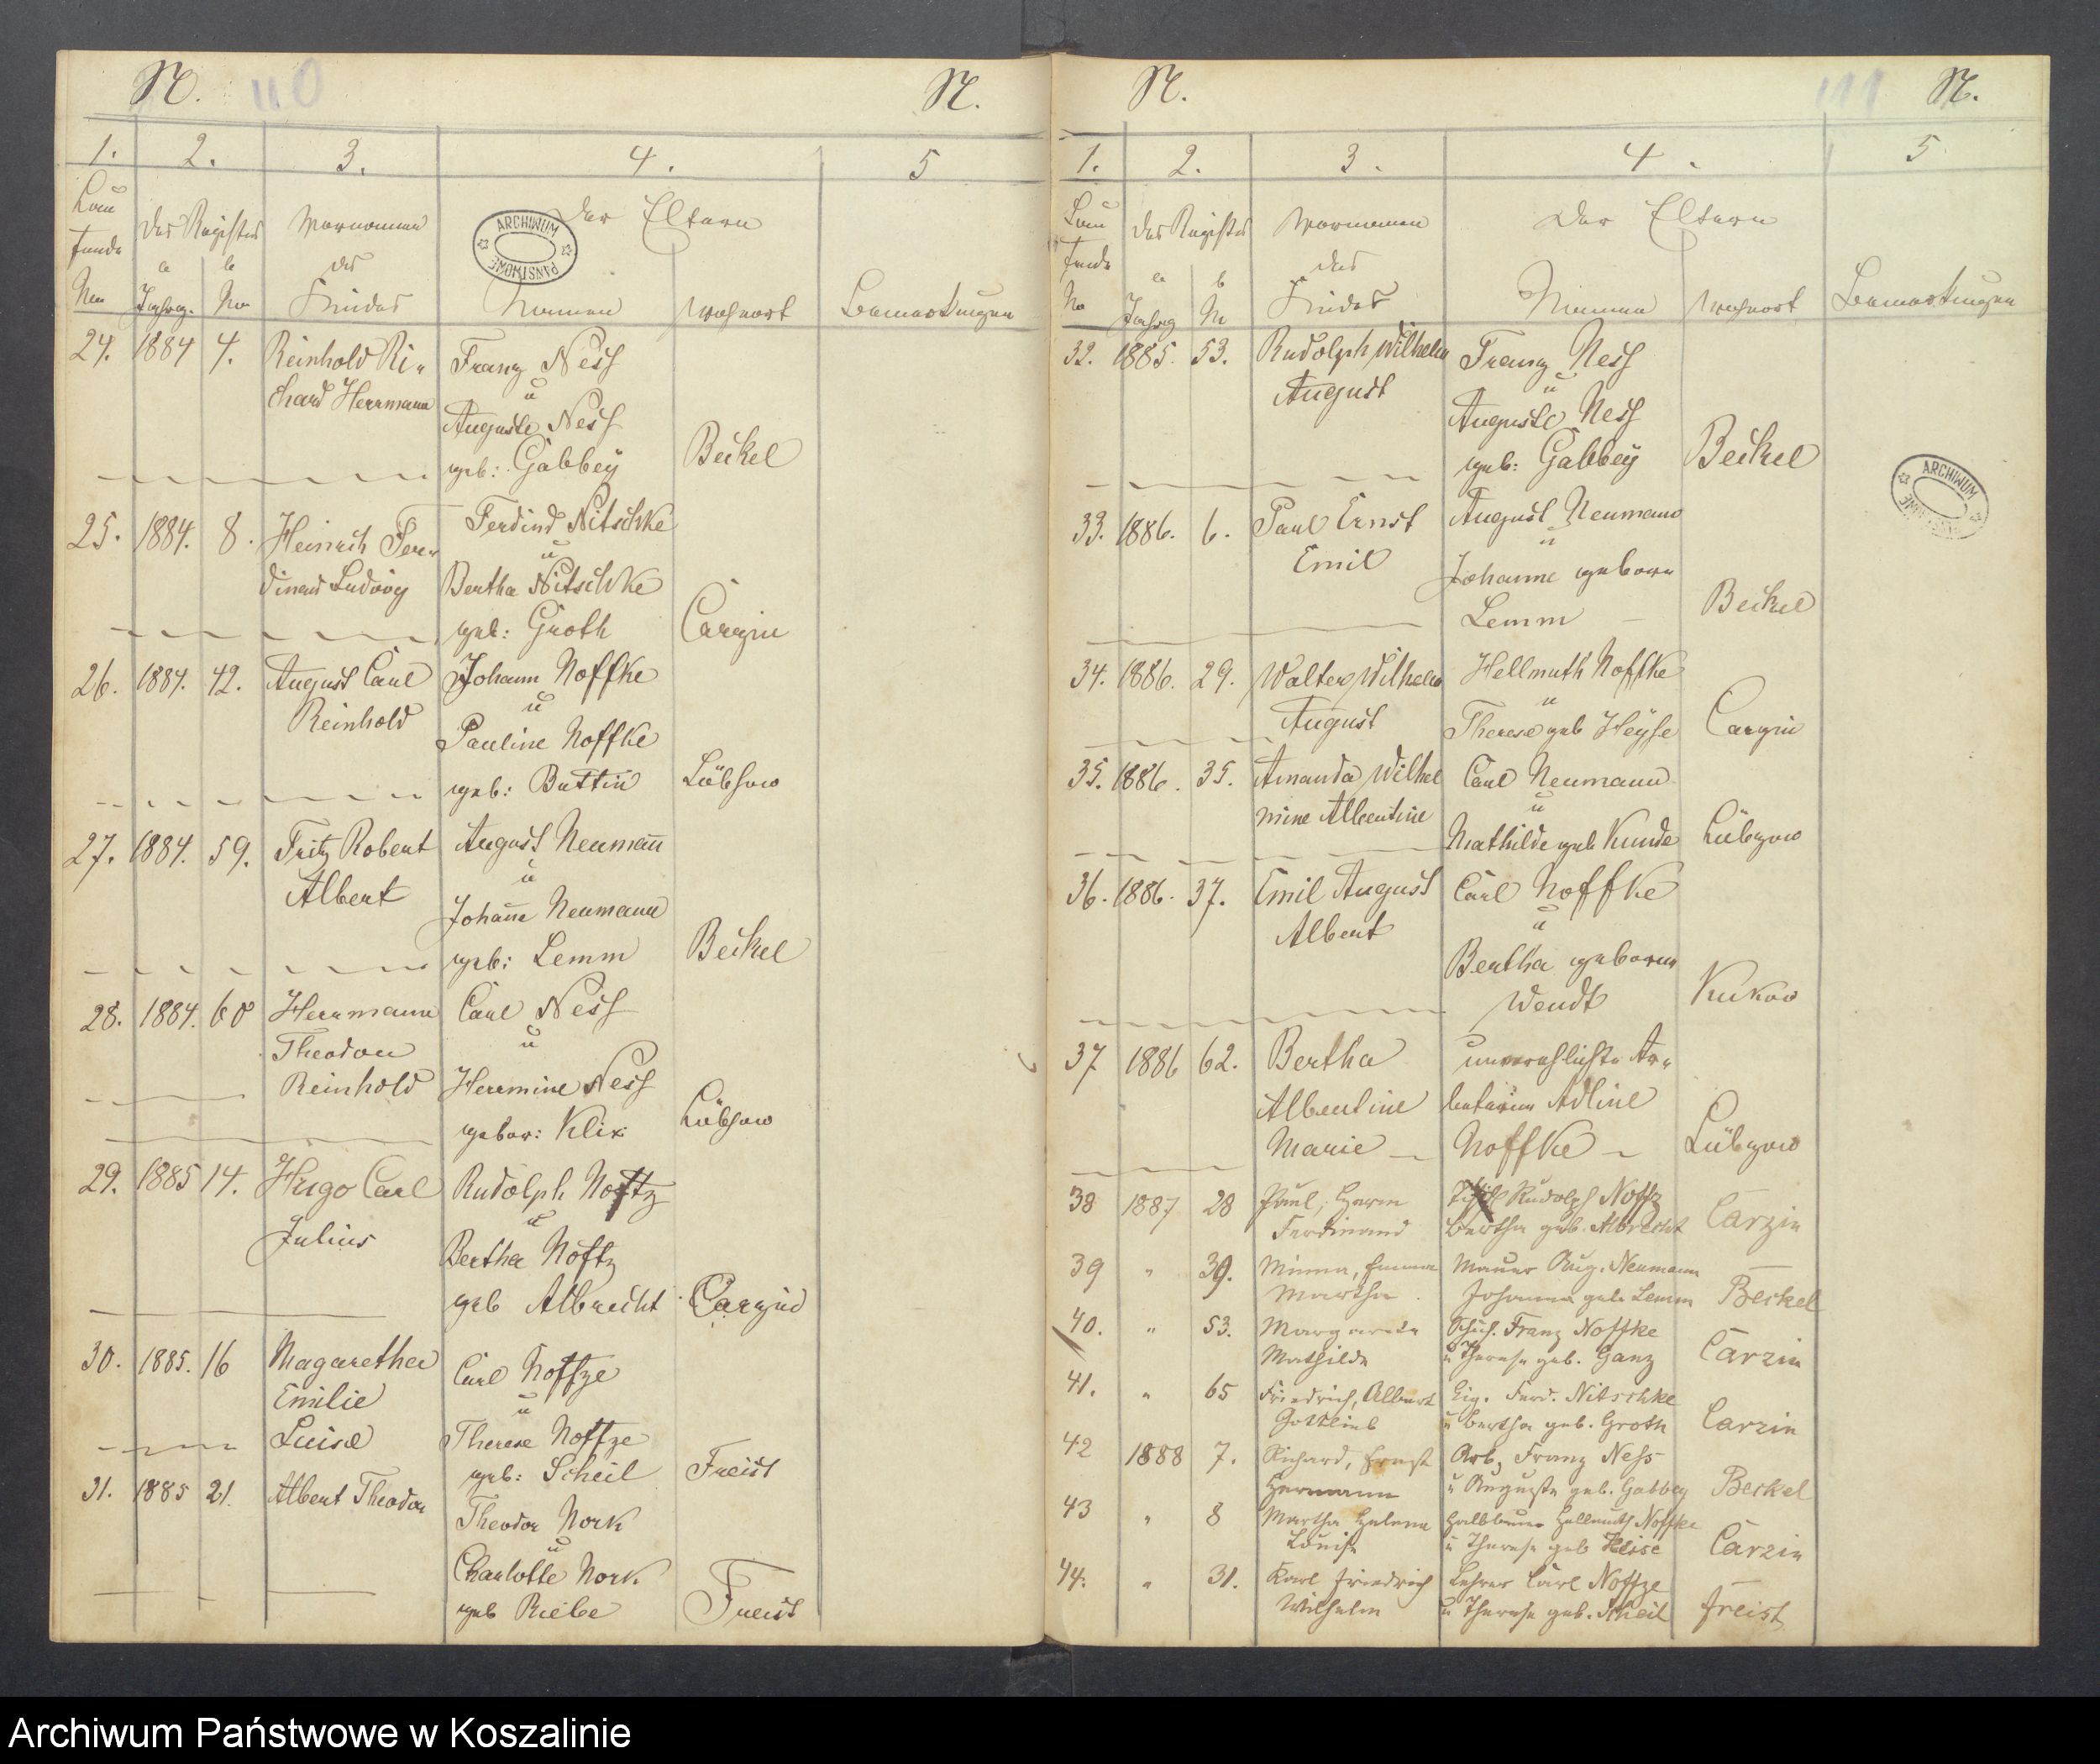 N. 110 N.
1. 2. 3. 4. 5
Lau
fende
Des Registers Vornamen Der Eltern
ARCHIWUM PAŃSTWOWE
a b des
Nro Jahrg. No Kindes Namen Wohnort Bemerkungen
24. 1884 4. Reinhold Ri- Franz Ness
u
chard Herrmann Auguste Ness
geb: Gabbey Beckel
25. 1884. 8. Heinrich Fer- Ferdind Nitschke
u
dinand Ludwig Bertha Nitschke
geb: Groth Carzin
26. 1884. 42. August Carl Johann Noffke
Reinhold u
Pauline Noffke
geb: Buttin Lübsow
27. 1884. 59. Fritz Robert August Neumañ
Albert u
Johañe Neumann
geb: Lemm Beckel
28. 1884. 60 Herrmann Carl Ness
Theodor u
Reinhold Hermine Ness
gebor: Klix Lübsow
29. 1885 14. Hugo Carl Rudolph Noftz
Julius u
Bertha Noftz
geb Albrecht Carzin
30. 1885. 16 Magarethee Carl Noffze
Emilie u
Luise Therese Noffze
geb: Scheil Freist
31. 1885 21. Albert Theodor Theodor Nork
u
Charlotte Nork
geb Riebe Freist
N. 111 N.
1. 2. 3. 4. 5
Lau
fende
Des Registers Vornamen Der Eltern
a b des
No Jahrg N Kindes Namen Wohnort Bemerkungen
32. 1885. 53. Rudolph Wilhelm Franz Ness
August u
Auguste Ness
geb: Gabbey Beckel
ARCHIWUM
33. 1886. 6. Paul Ernst August Neumann
Emil u
Johanne geborn
Lemm Beckel
34. 1886. 29. Walter Wilhelm Hellmuth Noffke
August u
Therese geb Heyse Carzin
35. 1886. 35. Amanda Wilhel Carl Neumann
mine Albertine u
Mathilde geb Kunde Lübzow
36. 1886. 37. Emil August Carl Noffke
Albert u
Bertha geboren
Wendt Kukow
37 1886 62. Bertha unverehlichte Ar-
Albertine beiterin Adline
Marie Noffke Lübzow
38 1887 28 Paul, Herm Rudolph Noffz
Ferdinand Bertha geb. Albrecht Carzin
39 " 39. Minna, Emma Maurer Aug. Neumann
Martha Johanna geb Lemm Beckel
40. " 53. Margarete Franz Noffke
Mathilde u Therese geb. Ganz Carzin
41. " 65 Friedrich, Albert Eig. Ferd. Nitschke
Gottlieb u Bertha geb. Groth Carzin
42 1888 7. Richard, Ernst Arb. Franz Ness
Hermann u Auguste geb. Gabbey Beckel
43 " 8 Martha Helene Halbbauer Hellmuth Noffke
Louise u Therese geb Heise Carzin
44. " 31. Karl Friedrich Lehrer Carl Noffze
Wilhelm u Therese geb. Scheil Freist
Archiwum Państwowe w Koszalinie